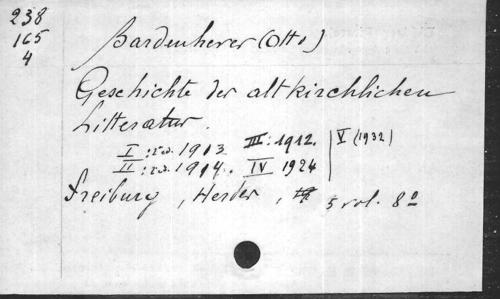 238
165
4
Bardenhewer (Otto)
Geschichte der altkirchlichen
Litteratur.
I : 2 éd. 1913 III : 1912. V (1932)
II : 2 éd. 1914. IV 1924
Freiburg, Herder, 5 vol. 8º